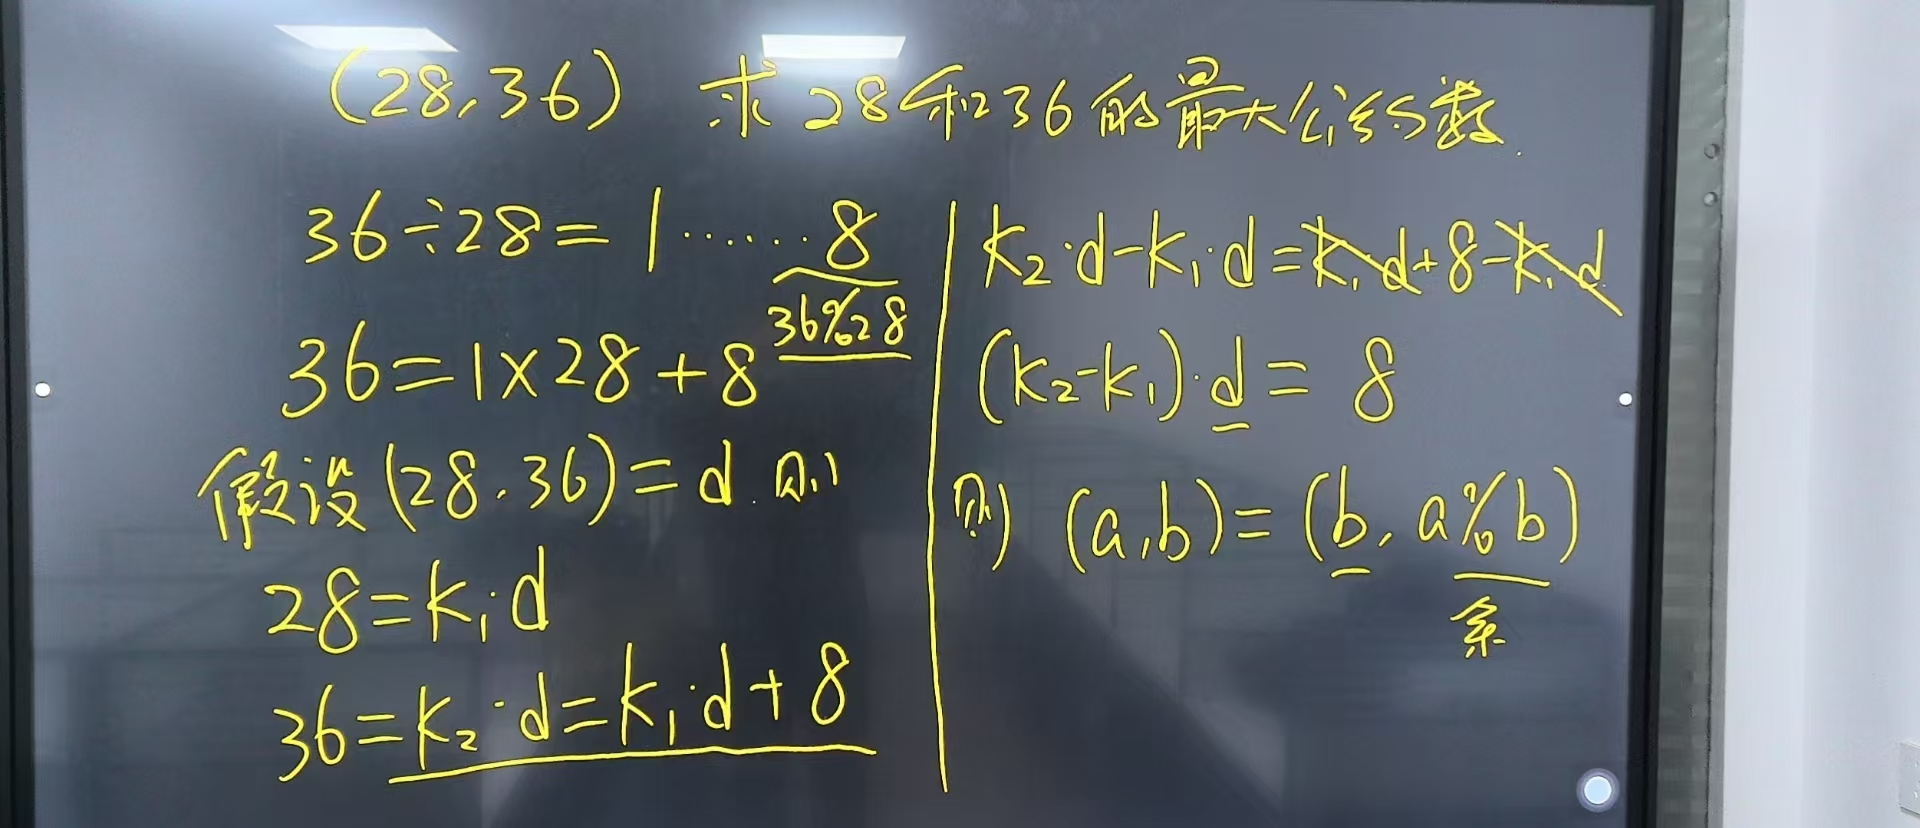 (28,36) 求28和36的最大公约数.
36÷28=1……8
36%28
36=1×28+8
假设(28,36)=d.则
28=k₁·d
36=k₂·d=k₁·d+8
k₂·d-k₁·d=k₁·d+8-k₁·d
(k₂-k₁)·d=8
则 (a,b)=(b,a%b)